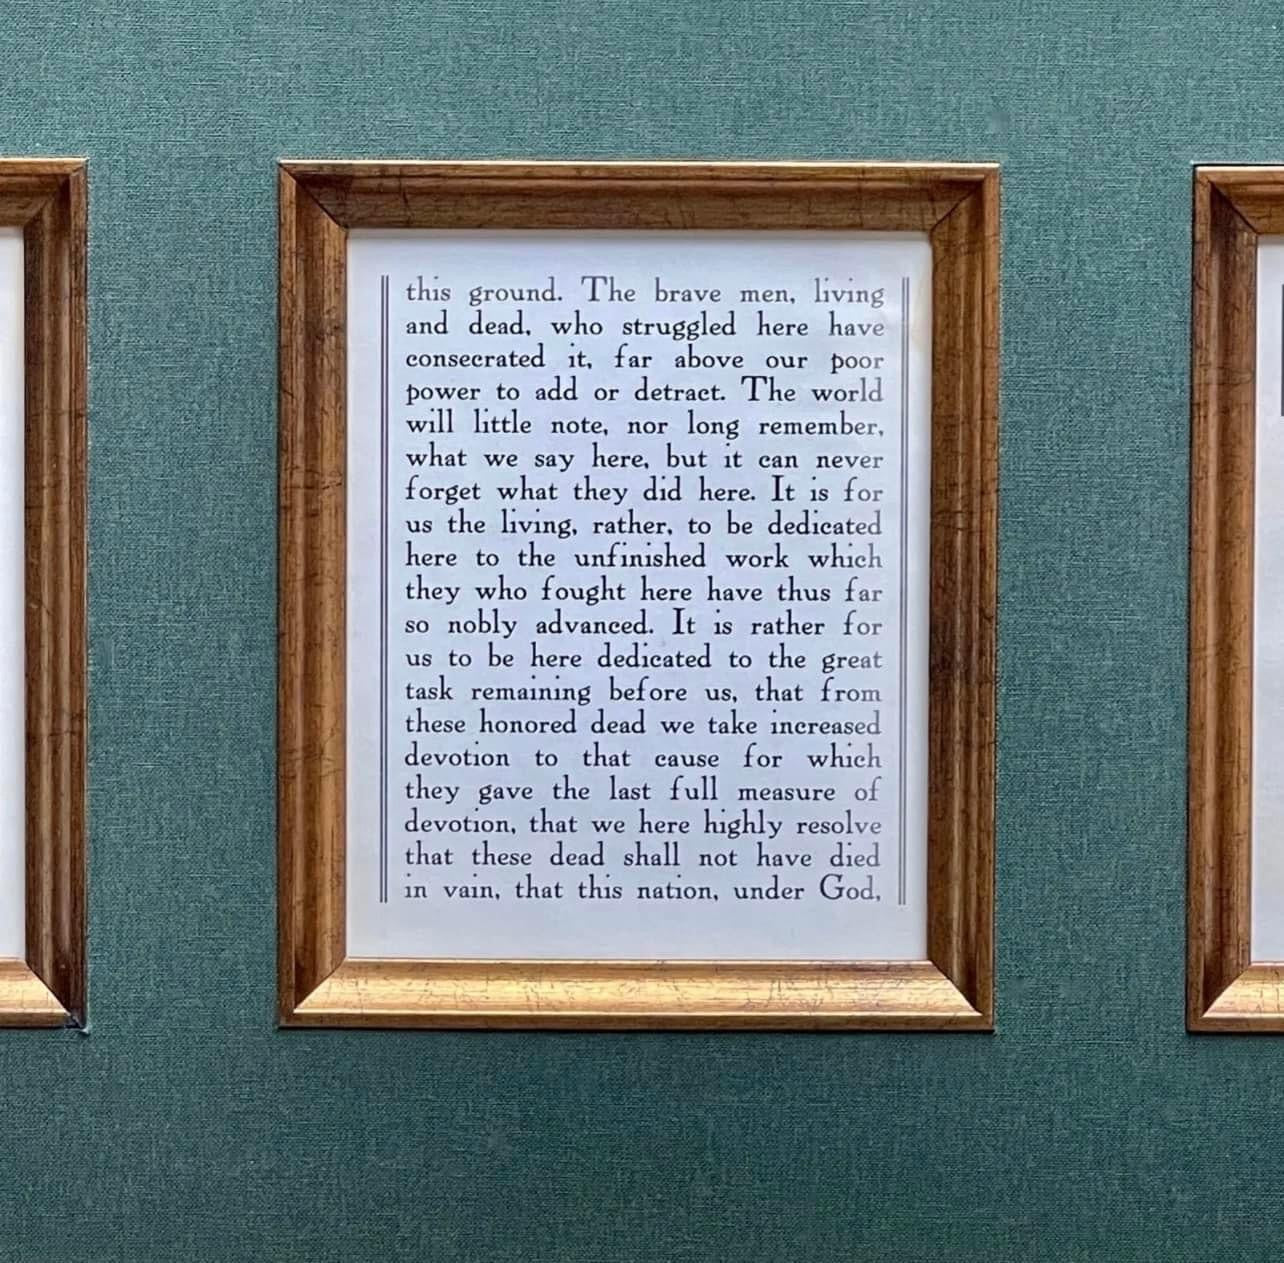 this ground. The brave men, living
and dead, who struggled here have
consecrated it, far above our poor
power to add or detract. The world
will little note, nor long remember,
what we say here, but it can never
forget what they did here. It is for
us the living, rather, to be dedicated
here to the unfinished work which
they who fought here have thus far
so nobly advanced. It is rather for
us to be here dedicated to the great
task remaining before us, that from
these honored dead we take increased
devotion to that cause for which
they gave the last full measure of
devotion, that we here highly resolve
that these dead shall not have died
in vain, that this nation, under God,